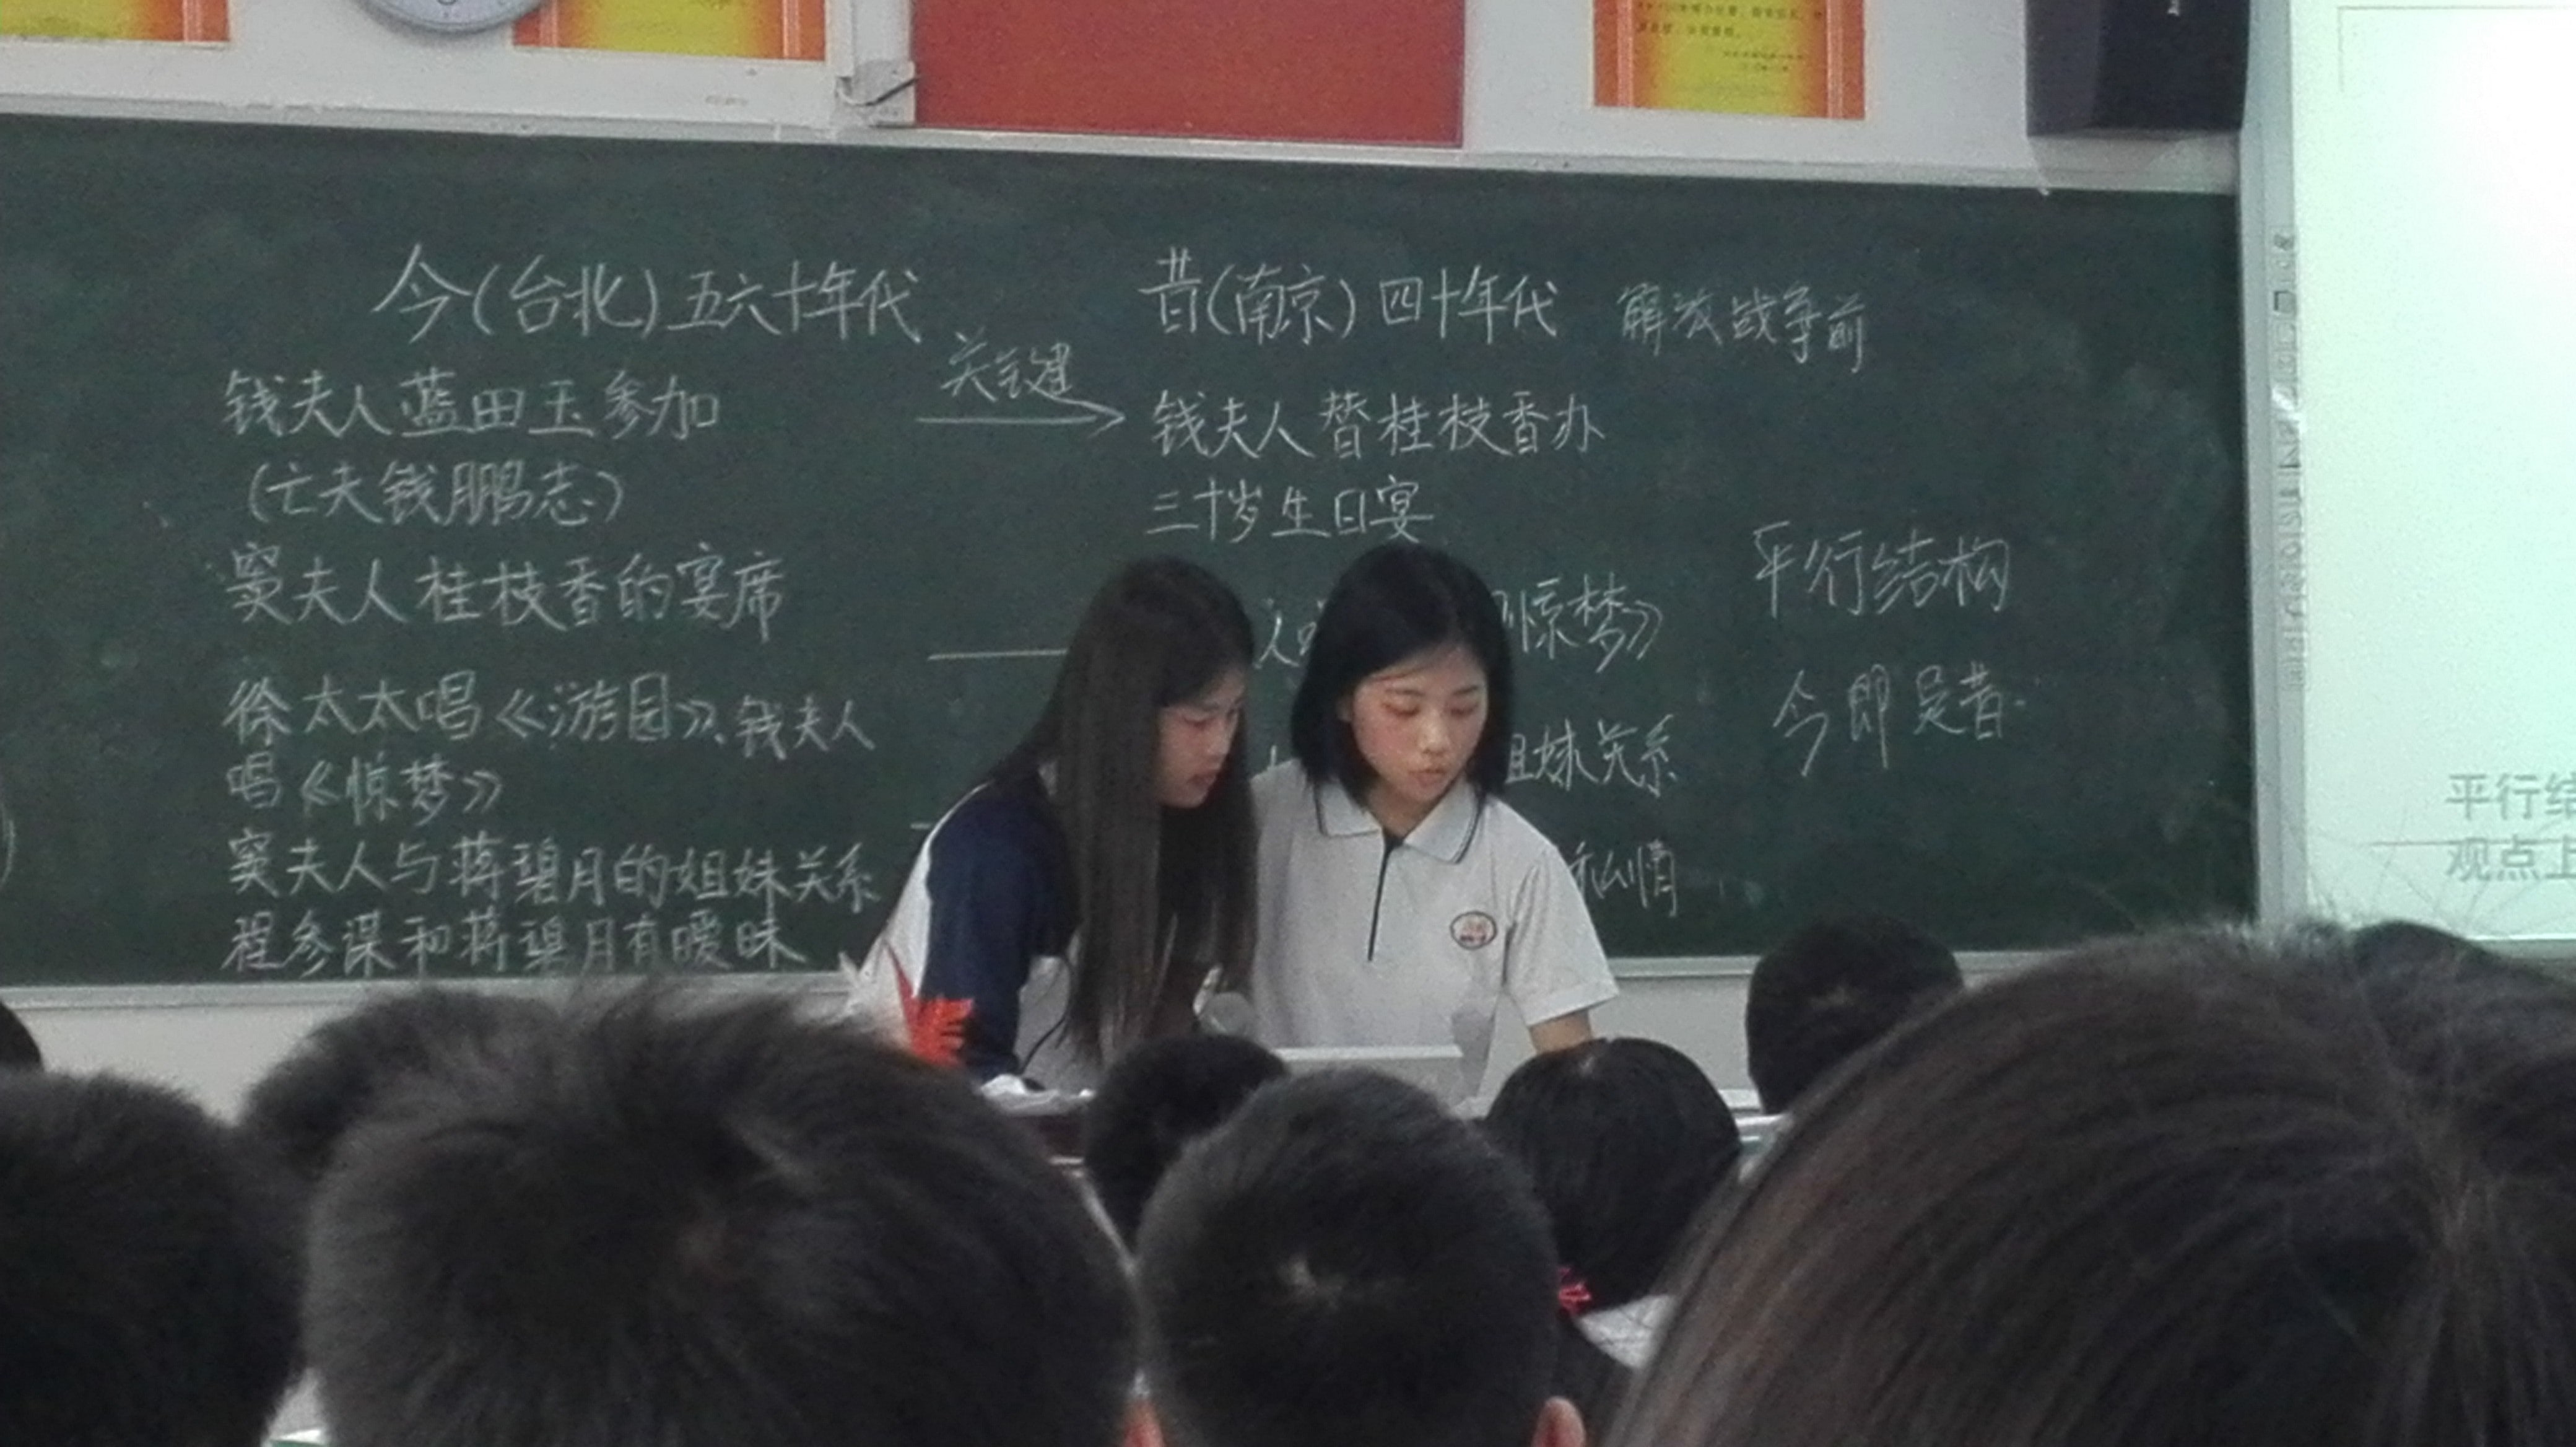 今(台北)五六十年代
钱夫人蓝田玉参加
(亡夫钱鹏志)
窦夫人桂枝香的宴席
徐太太唱《游园》、钱夫人
唱《惊梦》
窦夫人与蒋碧月的姐妹关系
程参谋和蒋碧月有暧昧
关键
昔(南京)四十年代 解放战争前
钱夫人替桂枝香办
三十岁生日宴
惊梦》
姐妹关系
私情
平行结构
今即是昔.
平行结
观点上